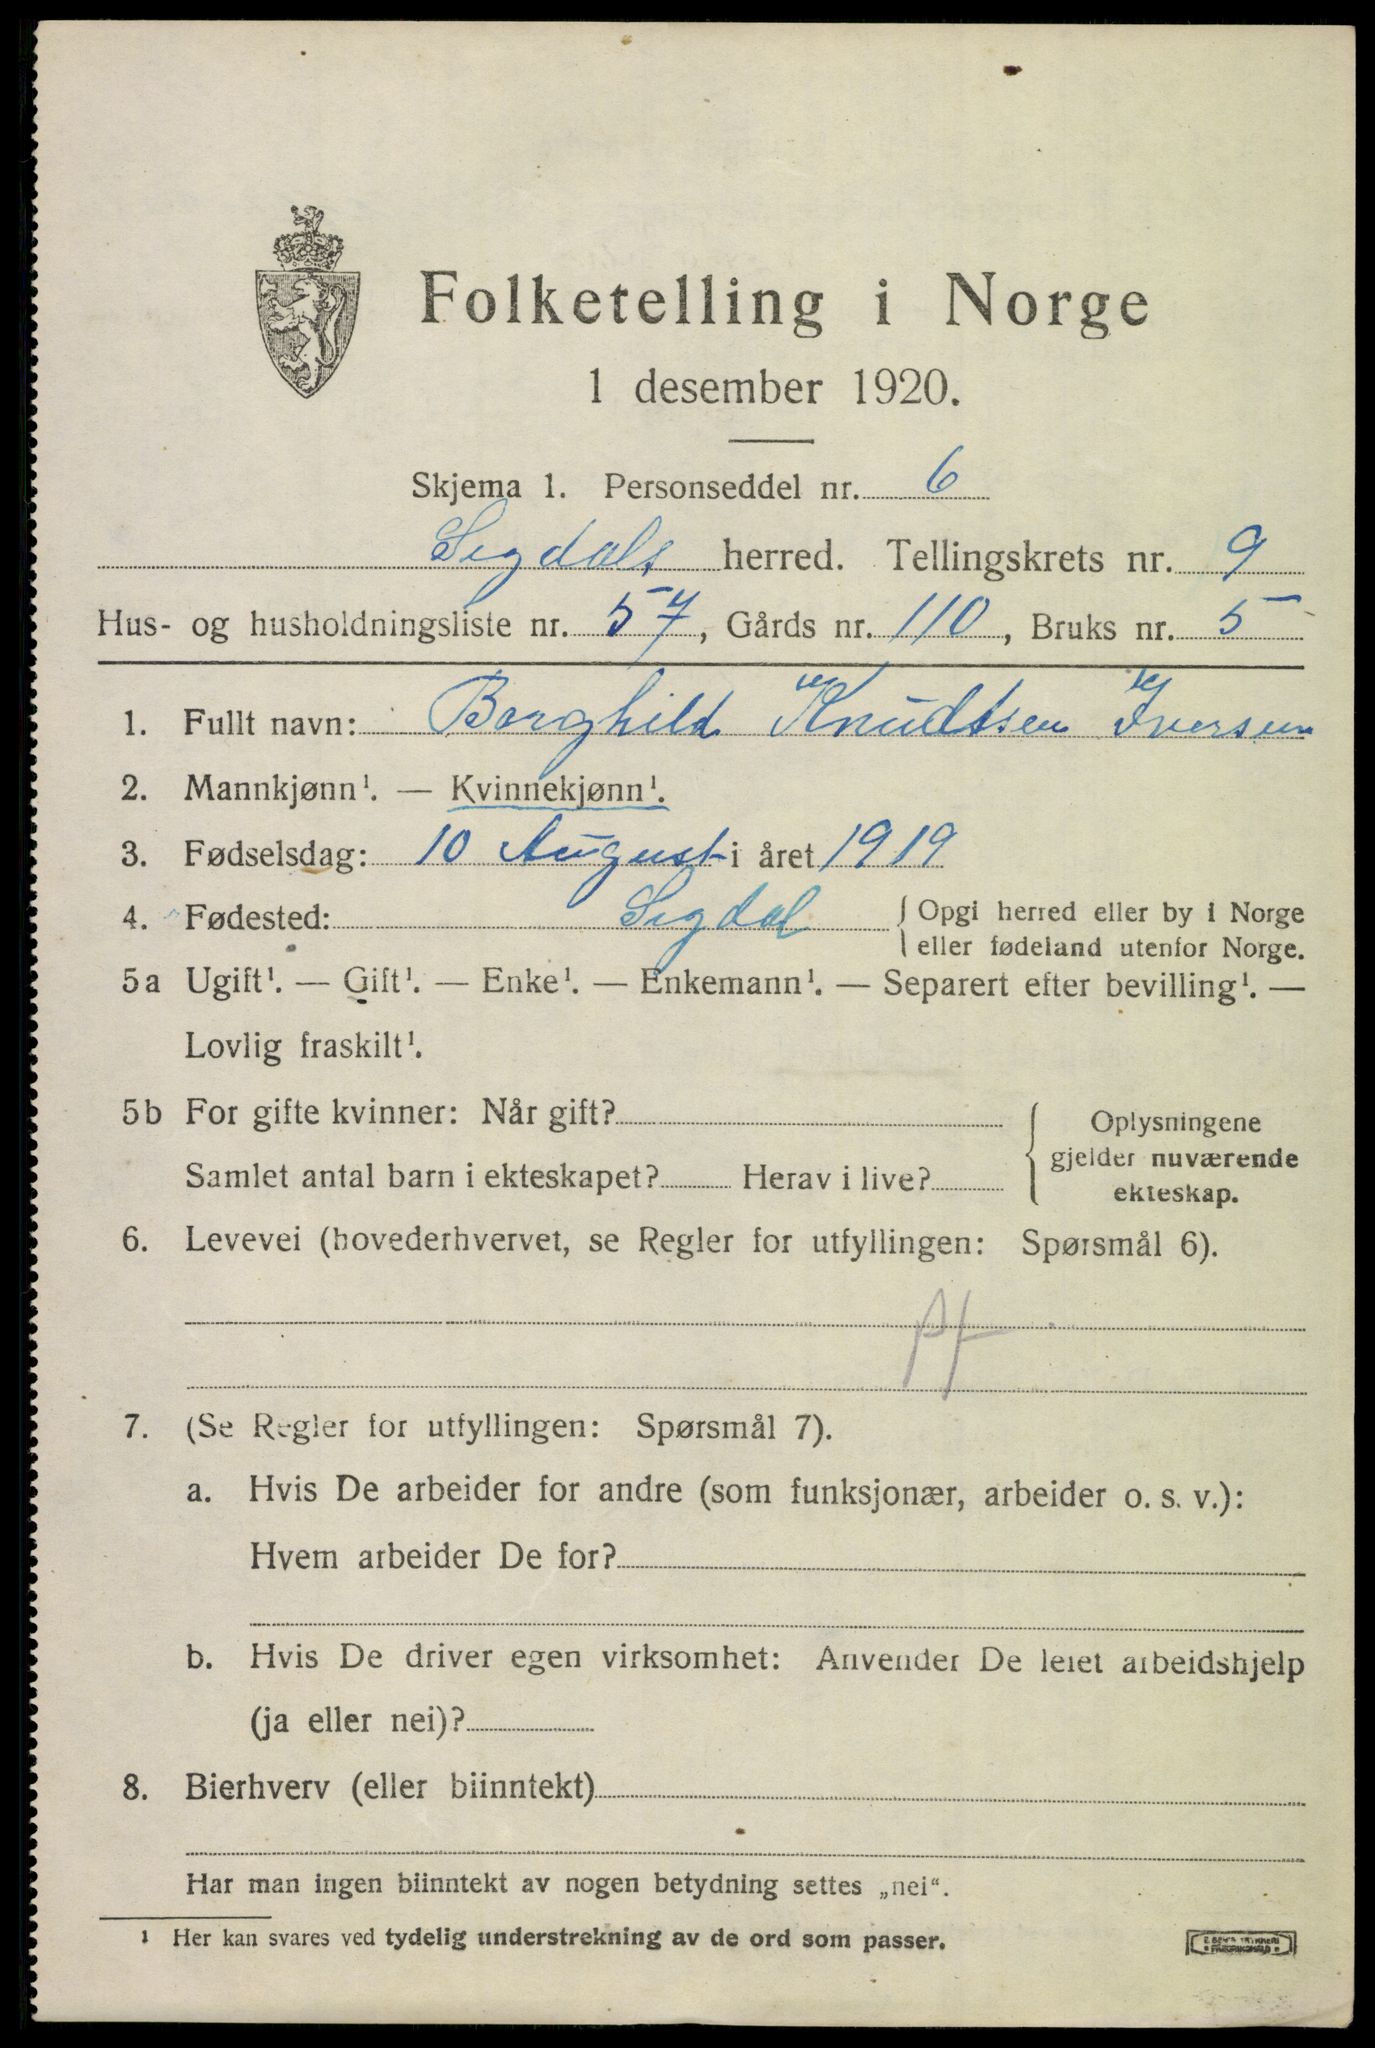 Folketelling i Norge
1 desember 1920.
Skjema 1. Personseddel nr. 6
Sigdals herred. Tellingskrets nr. 9
Hus- og husholdningsliste nr. 57, Gårds nr. 110, Bruks nr. 5
1. Fullt navn: Borghild Knudtsen Iversen
2. Mannkjønn¹. — Kvinnekjønn¹.
3. Fødselsdag: 10 August i året 1919
4. Fødested: Sigdal { Opgi herred eller by i Norge
eller fødeland utenfor Norge.
5a Ugift¹. — Gift¹. — Enke¹. — Enkemann¹. — Separert efter bevilling¹. —
Lovlig fraskilt¹.
5b For gifte kvinner: Når gift?
Samlet antal barn i ekteskapet? Herav i live?
{ Oplysningene
gjelder nuværende
ekteskap.
6. Levevei (hovederhvervet, se Regler for utfyllingen: Spørsmål 6).
7. (Se Regler for utfyllingen: Spørsmål 7).
a. Hvis De arbeider for andre (som funksjonær, arbeider o. s. v.):
Hvem arbeider De for?
b. Hvis De driver egen virksomhet: Anvender De leiet arbeidshjelp
(ja eller nei)?
8. Bierhverv (eller biinntekt)
Har man ingen biinntekt av nogen betydning settes „nei“.
¹ Her kan svares ved tydelig understrekning av de ord som passer.